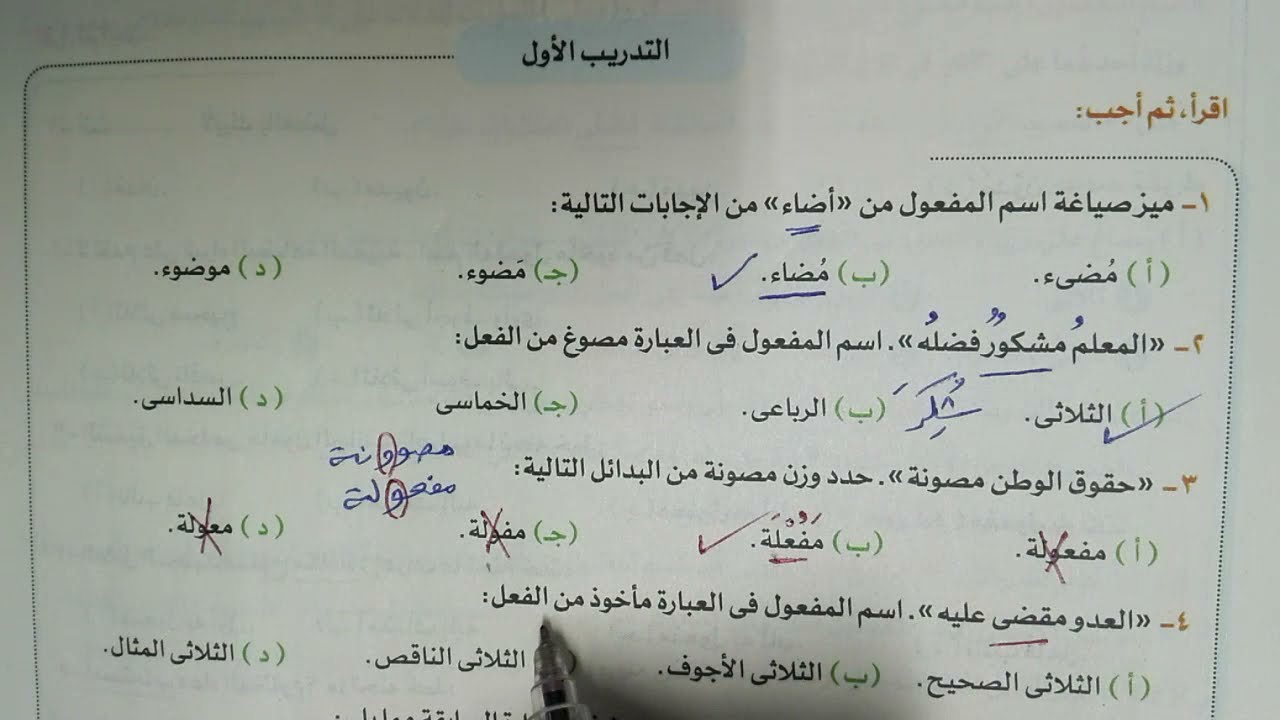 التدريب الأول
اقرأ، ثم أجب:
١- ميز صياغة اسم المفعول من «أضاء» من الإجابات التالية:
(أ) مُضىء. (ب) مُضاء. (جـ) مَضوء. (د) موضوء.
٢- «المعلمُ مشكورٌ فضلهُ». اسم المفعول فى العبارة مصوغ من الفعل:
(أ) الثلاثى. شُكِرَ (ب) الرباعى. (جـ) الخماسى (د) السداسى.
مصوونة
مفعولة
٣- «حقوق الوطن مصونة». حدد وزن مصونة من البدائل التالية:
(أ) مفعولة. (ب) مَفُعْلَة. (جـ) مفولة. (د) معولة.
٤- «العدو مقضى عليه». اسم المفعول فى العبارة مأخوذ من الفعل:
(أ) الثلاثى الصحيح. (ب) الثلاثى الأجوف. الثلاثى الناقص. (د) الثلاثى المثال.